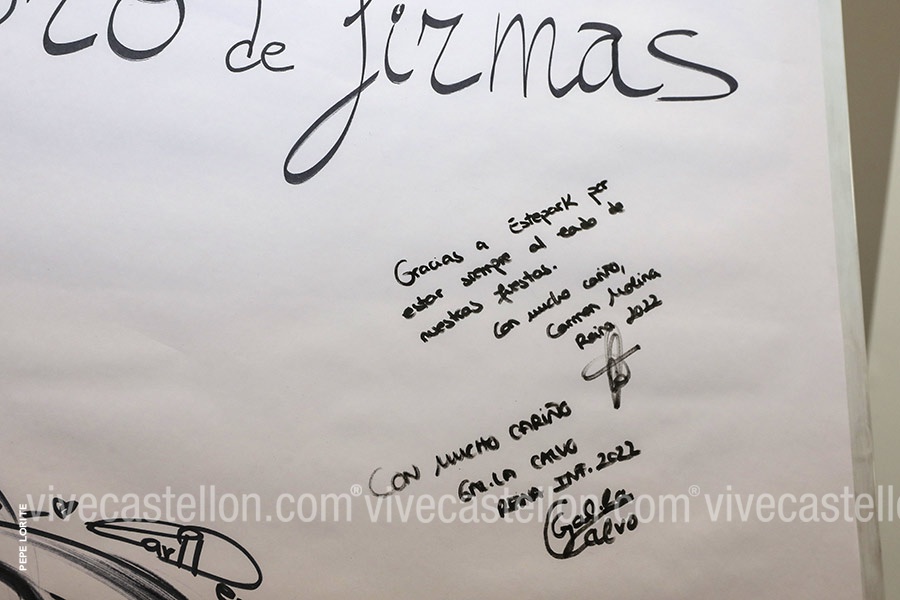 de firmas
Gracias a Estepark por
estar siempre al lado de
nuestras fiestas.
Con mucho cariño,
Carmen Molina
Reina 2022
CON MUCHO CARIÑO
CALVO
REINA INF. 2022
Calvo
vivecastellon.com® vivecastellon.com® vivecastellon
PEPE LORITE